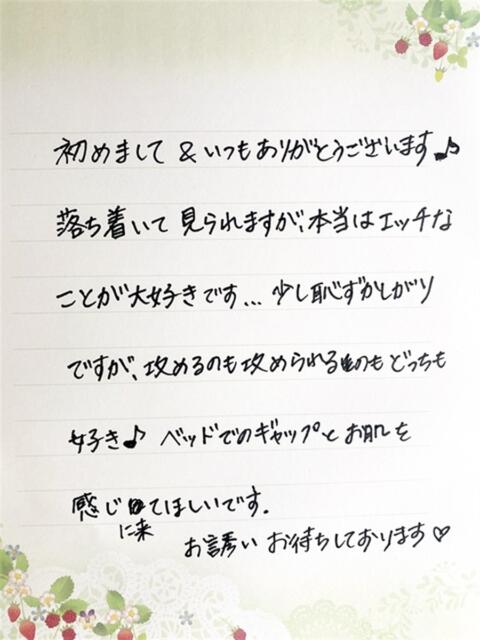 初めまして & いつもありがとうございます♪
落ち着いて 見られますが、本当はエッチな
ことが大好きです… 少し恥ずかしがり
ですが、攻めるのも攻められるのも どっちも
好き♪ ベッドでのギャップと お肌を
感じに来てほしいです。
お誘い お待ちしております♡